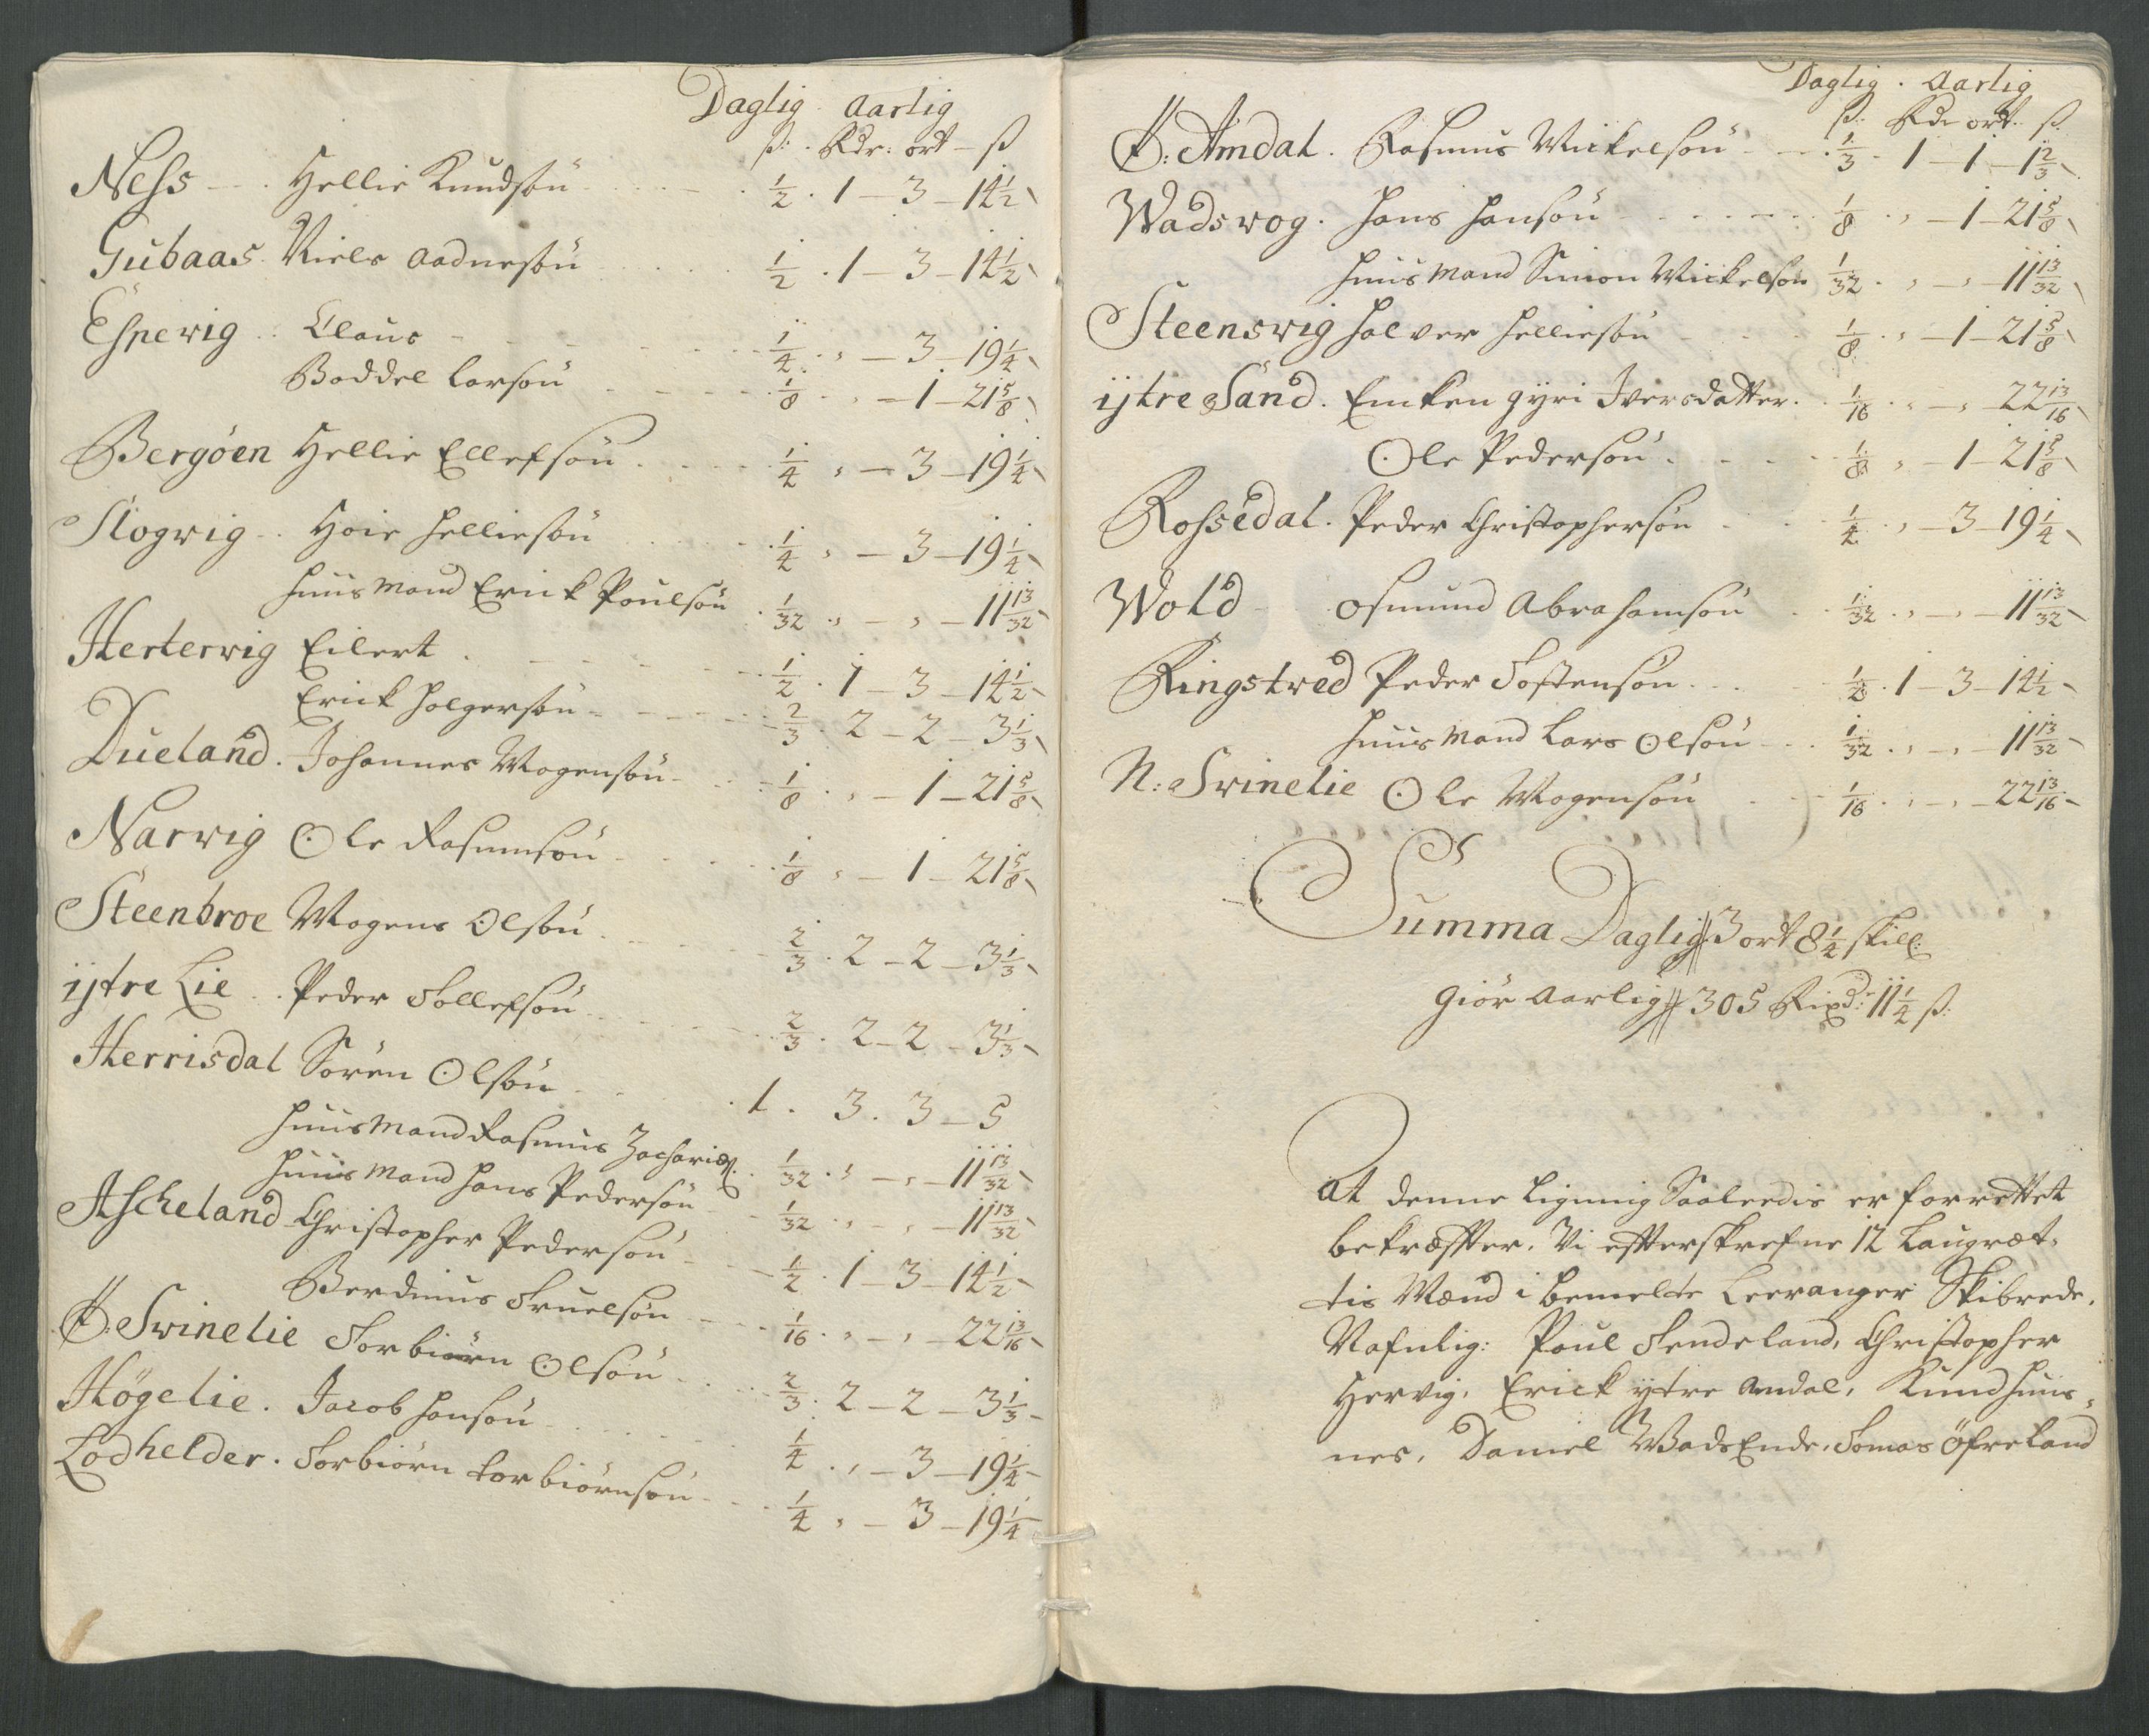 Daglig Aarlig
ß: Rdr: ort - ß
Ness Hellie Knudsøn ½ . 1 - 3 - 14½
Gubaas Niels Aadnesøn ½ . 1 - 3 - 14½
Espevig Claus ¼ . " - 3 - 19¼
Boddel Larsøn ⅛ . " - 1 - 21⅝
Bergöen Hellie Ellefsøn ¼ " - 3 - 19¼
Slogvig Hoie Helliesøn ¼ " - 3 - 19¼
Huusmand Erick Poulsøn 1/32 " - " - 11 13/32
Herlervig Eilert ½ . 1 - 3 - 14½
Erick Holgersøn ⅔ . 2 - 2 - 3⅓
Dueland. Johannes Mogensøn ⅛ . " - 1 - 21⅝
Narvig Ole Rasmusøn ⅛ " - 1 - 21⅝
Steenbroe Mogens Olsøn ⅔ . 2 - 2 - 3⅓
ijtre Lie Peder Tollefsøn ⅔ . 2 - 2 - 3⅓
Herrisdal Sören Olsøn 1 . 3 . 3 - 5
Huusmand Rasmus Zacharies. 1/32 . " - " - 11 13/32
Huusmand Hans Pedersøn 1/32 . " - " - 11 13/32
Ascheland Christopher Pedersøn ½ . 1 - 3 - 14½
Berdinus Truelsøn 1/16 . " - " - 22 13/16
Ö: Svinelie Torbiørn Olsøn ⅔ . 2 - 2 - 3⅓
Högelie. Jacob Hansøn ¼ . " - 3 - 19¼
Lodhelder. Torbiørn torbiørnsøn ¼ " - 3 - 19¼
Daglig . Aarlig
ß: Rdr ort: ß.
Ö: Amdal. Rasmus Mickelsøn ⅓ . 1 - 1 - 1⅔
Wadsvog. Hans Hansøn ⅛ . " - 1 - 21⅝
Huusmand Simon Mickelsøn 1/32 . " - " - 11 13/32
Steensvig Halvor Helliesøn ⅛ . " - 1 - 21⅝
ijtre Sand. Encken gyri Iversdatter. 1/16 . " - " 22 13/16
Ole Pedersøn ⅛ " - 1 - 21⅝
Rossedal. Peder Christophersøn ¼ . " - 3 - 19¼
Wold Osmund Abrahamsøn 1/32 . " - " - 11 13/32
Ringstved Peder Tostensøn ½ . 1 - 3 - 14½
Huusmand Lars Olsøn 1/32 . " - " - 11 13/32
N: Svinelie Ole Mogensøn 1/16 . " - " - 22 13/16
Summa Daglig 3 ort 8¼ skill:
giör Aarlig 305 Rixdr: 11¼ ß:
At denne Ligning Saaledis er forrettet
bekræffter. Vi effterskrefne 12 Laugræt-
tis Mænd i bemelte Leeranger Skibrede.
Nafnlig: Poul Tendeland, Christopher
Hervig, Erick ytre Amdal, Knud Huus-
nes, Daniel WadsEnde, Tomas Öfreland